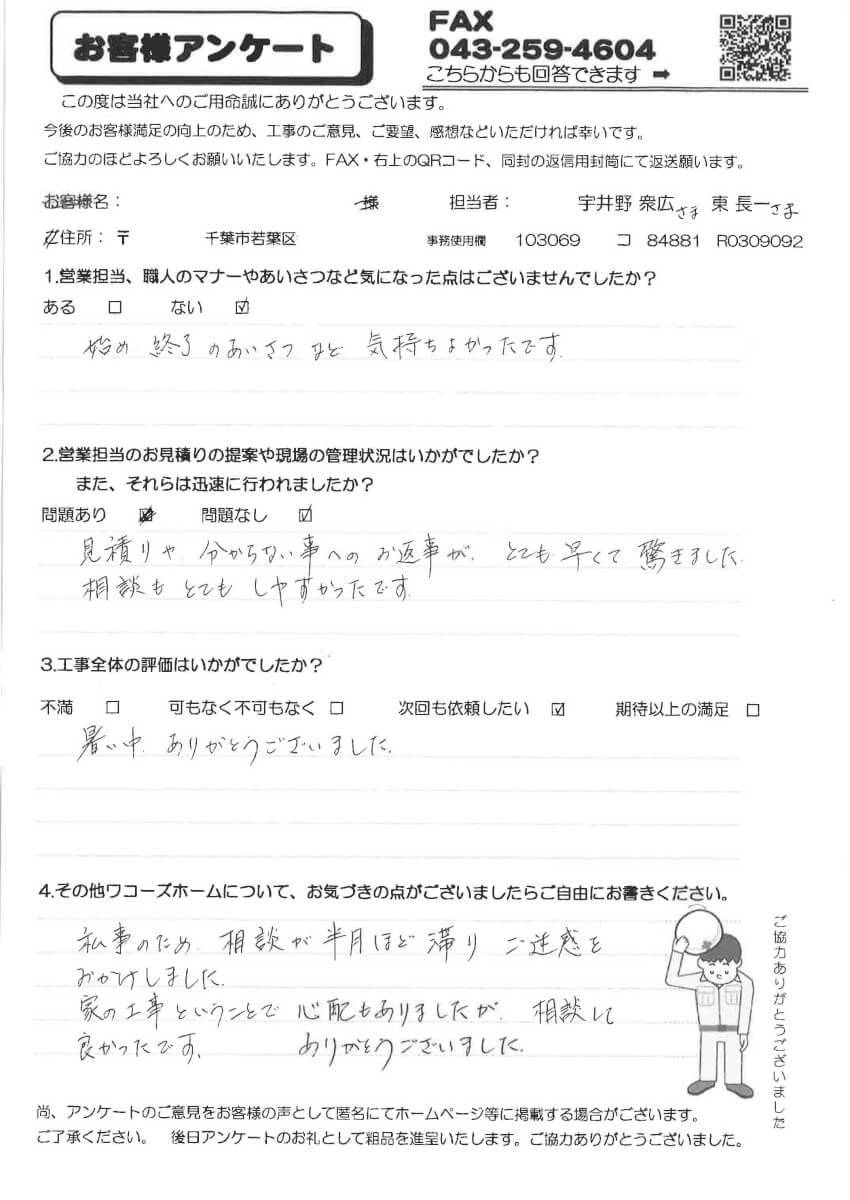 お客様アンケート
FAX
043-259-4604
こちらからも回答できます ➡
この度は当社へのご用命誠にありがとうございます。
今後のお客様満足の向上のため、工事のご意見、ご要望、感想などいただければ幸いです。
ご協力のほどよろしくお願いいたします。FAX・右上のQRコード、同封の返信用封筒にて返送願います。
お客様名： 様 担当者： 宇井野 衆広さま 東 長一さま
ご住所：〒 千葉市若葉区 事務使用欄 103069 コ 84881 R0309092
1.営業担当、職人のマナーやあいさつなど気になった点はございませんでしたか？
ある □ ない ☑
始め 終了のあいさつなど 気持ちよかったです.
2.営業担当のお見積りの提案や現場の管理状況はいかがでしたか？
また、それらは迅速に行われましたか？
問題あり ☑ 問題なし ☑
見積りや 分からない事へのお返事が、とても早くて驚きました.
相談もとてもしやすかったです.
3.工事全体の評価はいかがでしたか？
不満 □ 可もなく不可もなく □ 次回も依頼したい ☑ 期待以上の満足 □
暑い中、ありがとうございました.
4.その他ワコーズホームについて、お気づきの点がございましたらご自由にお書きください。
私事のため、相談が半月ほど滞り ご迷惑を
おかけしました.
家の工事ということで 心配もありましたが、相談して
良かったです、 ありがとうございました.
ご協力ありがとうございました
尚、アンケートのご意見をお客様の声として匿名にてホームページ等に掲載する場合がございます。
ご了承ください。 後日アンケートのお礼として粗品を進呈いたします。ご協力ありがとうございました。